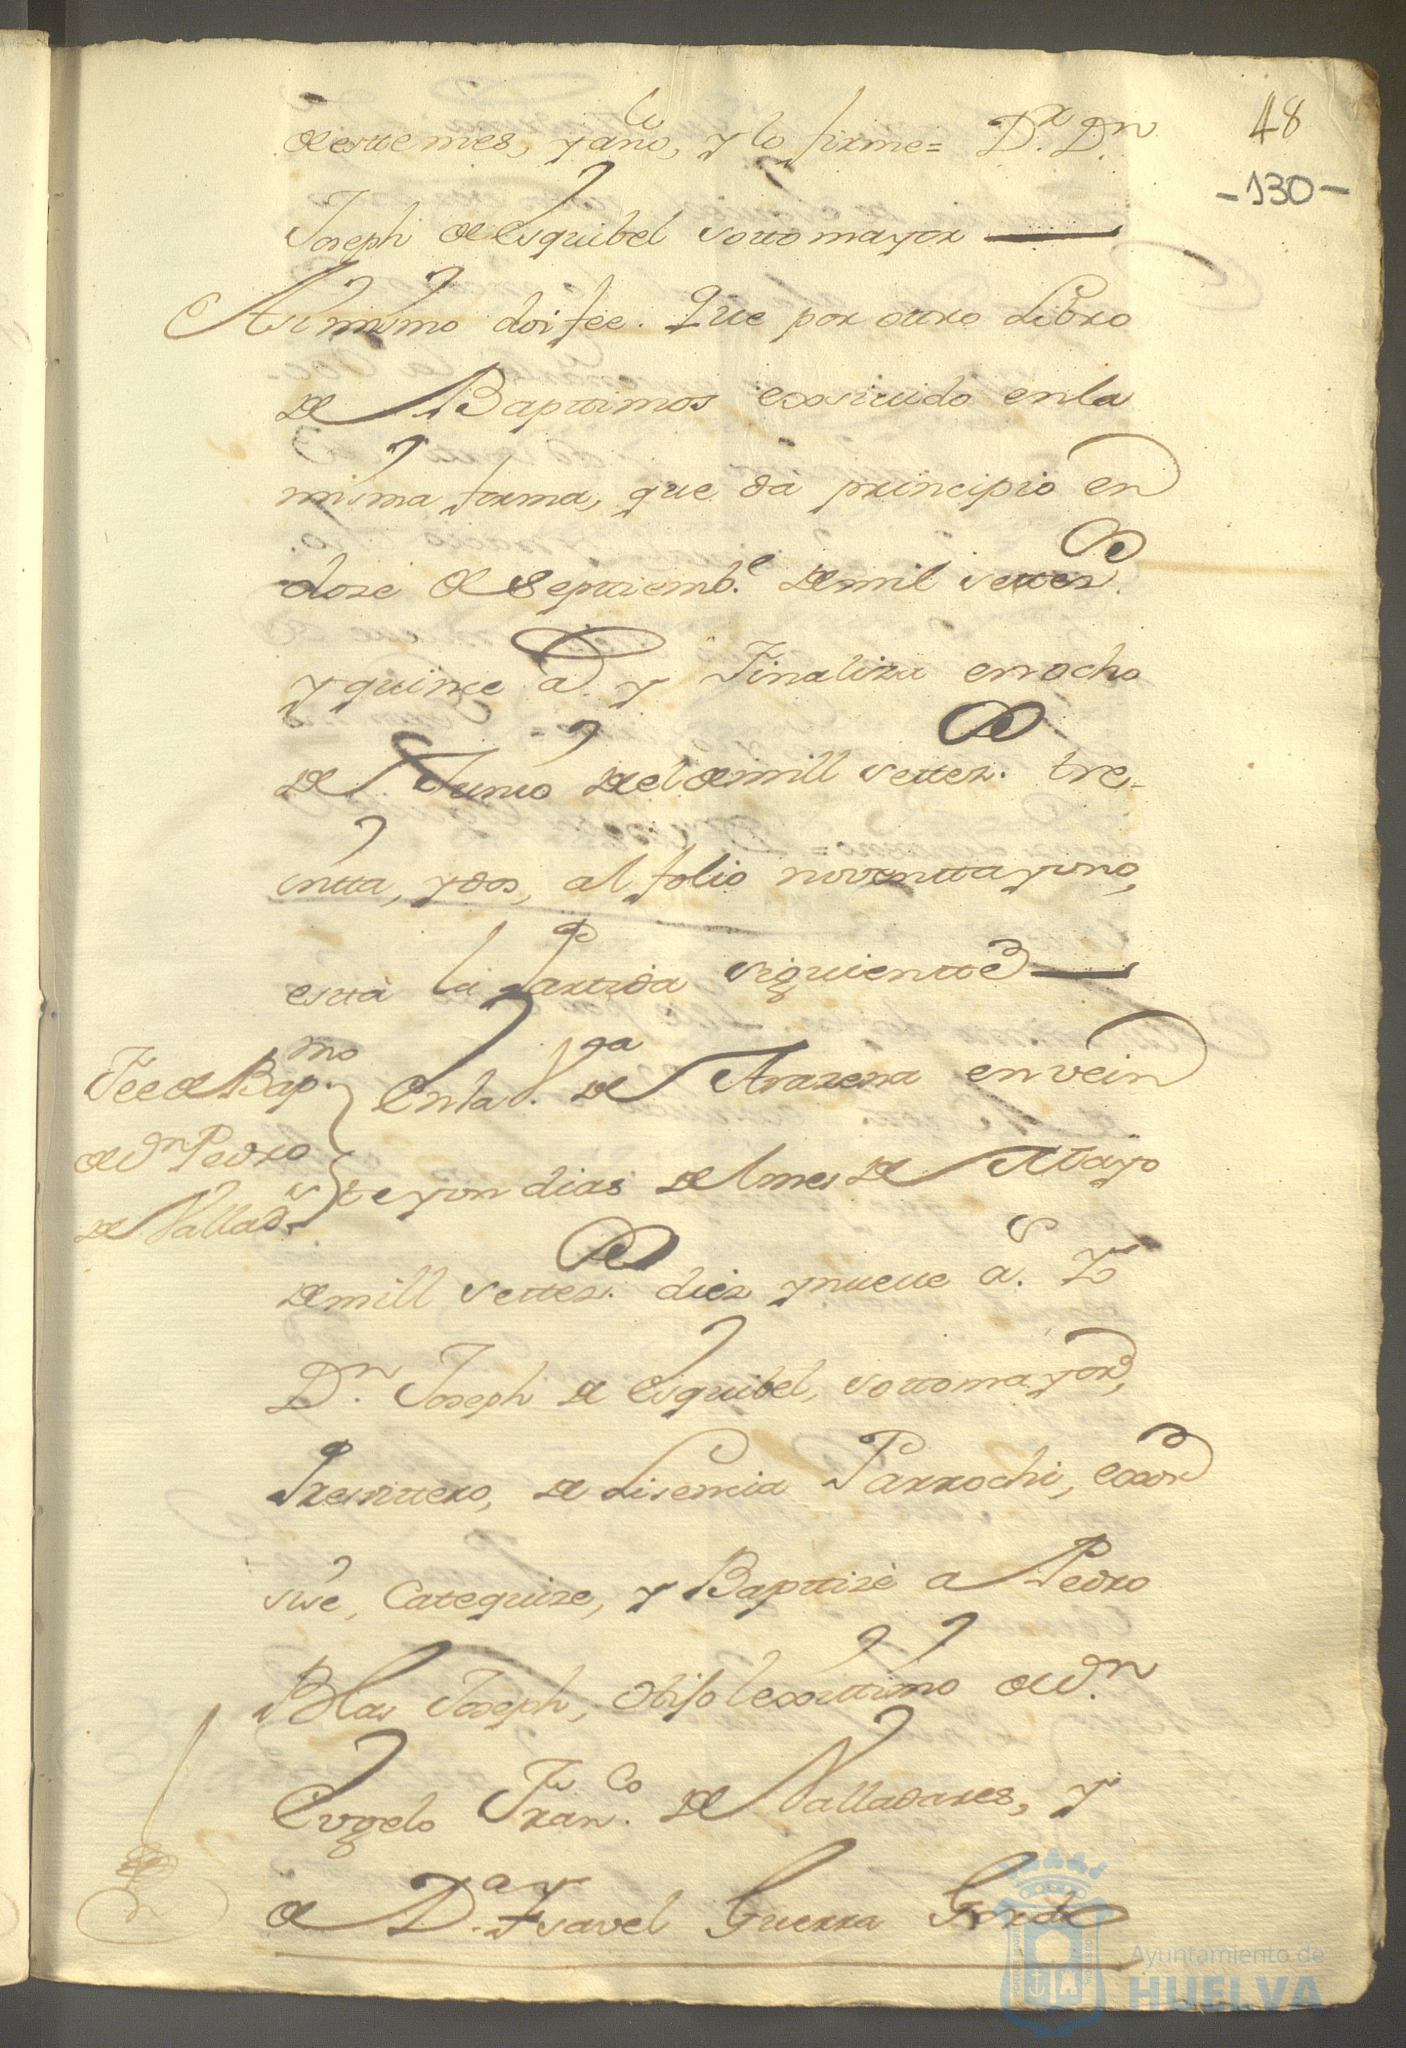 48
-130-
de este mes, y año, y lo firme= D.r D.n
Joseph de Esquibel Sottomayor
Asimismo doi fee. Que por ottro Libro
de Baptismos exsivido en la
misma forma, que dà principio en
doze de Septtiemb.e de mil settez.s
y quince a.s y Finaliza en ocho
de Junio del de mill settez.s tre-
intta, y dos, al folio noventta y uno,
esttà la Parttida siguientte
Fee de Bap.mo
de D.n Pedro
de Vallad.s
En la V.ga de Arazena en vein
te y un dias del mes de Mayo
de mill settez.s diez y nueve a.s Yo
D.n Joseph de Esquibel, Sottomayor,
Presvittero, de Lisencia Parrochi, exor
sise, Catequize, y Baptizè a Pedro
Blas Joseph, hijo lexittimo de D.n
Eugelo Fran.co de Valladares, y
de D.a Ysavel Guerra
Ayuntamiento de
HUELVA